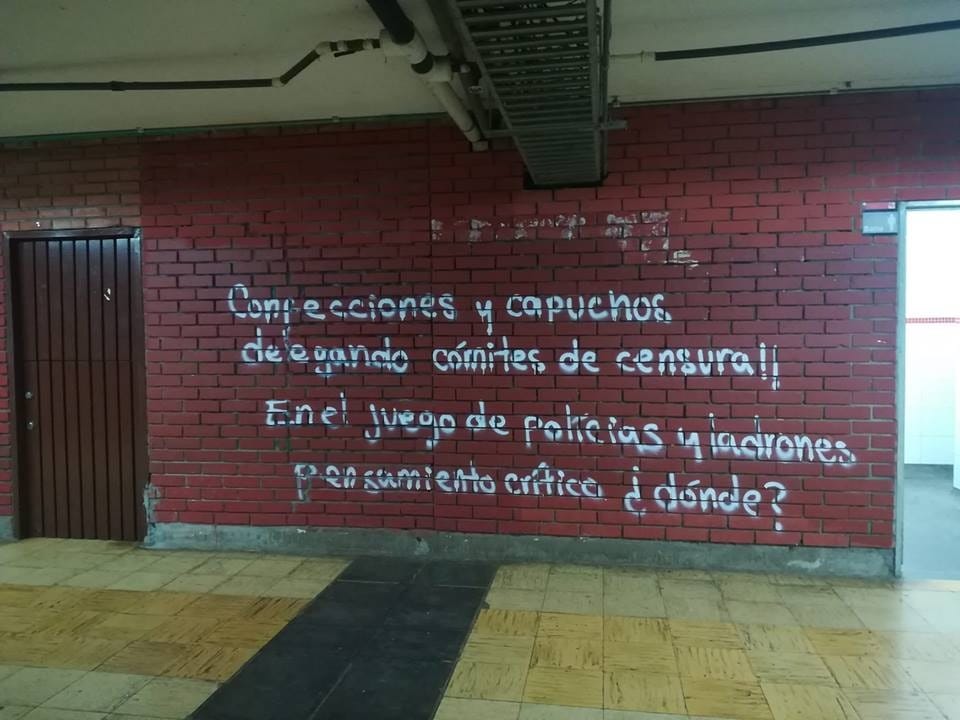 Confecciones y capuchos
delegando cómites de censura!!
En el juego de policias y ladrones
pensamiento crítico ¿dónde?